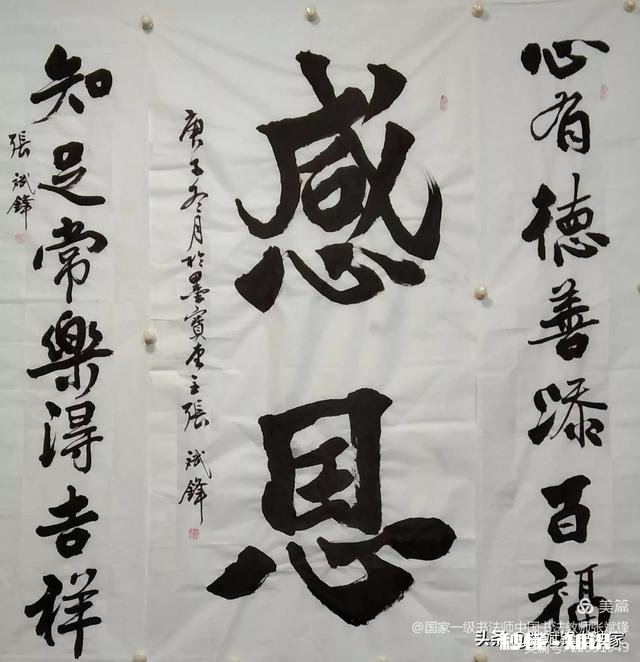 心有德善添百福
感恩
庚子冬月於墨寶堂主張斌鋒
知足常樂得吉祥
張斌鋒
美篇
@国家一级书法师中国书法教师张斌锋